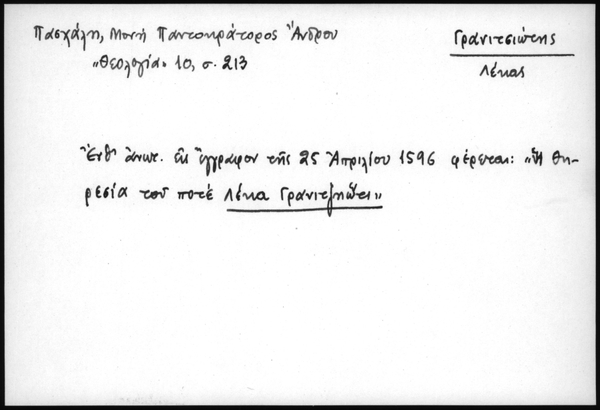 Πασχάλη, Μονή Παντοκράτορος Ἄνδρου
«Θεολογία» 10, σ. 213
Γρανιτσιώτης
Λέκας
Ἔνθ' ἀνωτ. εἰς ἔγγραφον τῆς 25 Ἀπριλίου 1596 φέρεται: «Ἡ θη-
ρεσία τοῦ ποτέ Λέκα Γρανιτζιώτι»